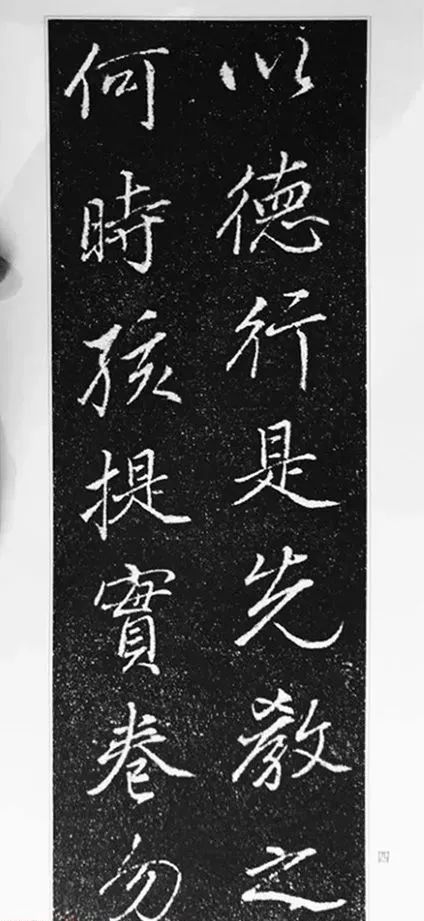 以德行是先教之
何時孩提實卷勿